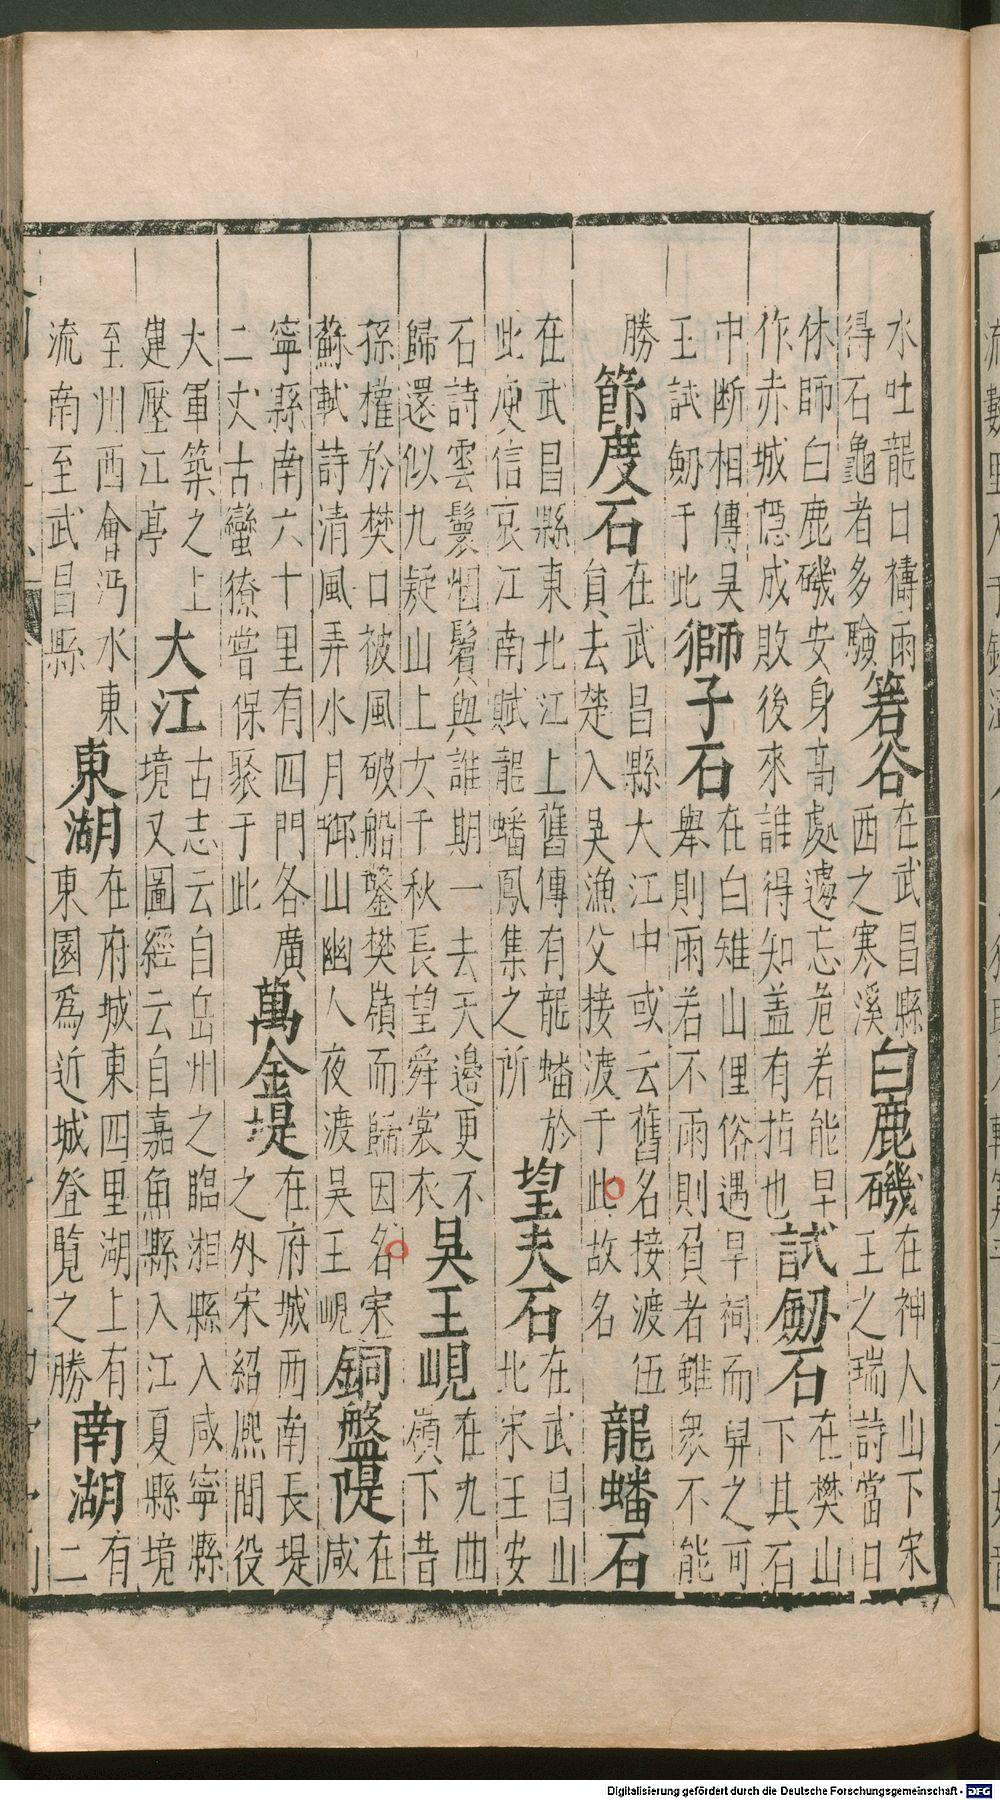 水吐龍口禱雨
得石龜者多驗
箬谷
在武昌縣
西之寒溪
白鹿磯
在神人山下宋
王之瑞詩當日
休師白鹿磯安身高處遽忘危若能早
作赤城隠成敗後來誰得知盖有指也
試劒石
在樊山
下其石
中断相傳吳
王試劒于此
獅子石
在白雉山俚俗遇旱祠而舁之可
舉則雨若不雨則負者雖衆不能
勝
節度石
在武昌縣大江中或云舊名接渡伍
員去楚入吳漁父接渡于此故名
龍蟠石
在武昌縣東北江上舊傳有龍蟠於
此庾信哀江南賦龍蟠鳳集之所
望夫石
在武昌山
北宋王安
石詩雲鬟烟鬢與誰期一去天邊更不
歸還似九疑山上女千秋長望舜裳衣
吳王峴
在九曲
嶺下昔
孫權於樊口被風破船鑿樊嶺而歸因名宋
蘇軾詩清風弄水月啣山幽人夜渡吳王峴
銅盤隄
在
咸
寧縣南六十里有四門各廣
二丈古蠻獠嘗保聚于此
萬金堤
在府城西南長堤
之外宋紹熈間役
大軍築之上
建壓江亭
大江
古志云自岳州之臨湘縣入咸寧縣
境又圖經云自嘉魚縣入江夏縣境
至州西會沔水東
流南至武昌縣
東湖
在府城東四里湖上有
東園為近城登覽之勝
南湖
有
二
Digitalisierung gefördert durch die Deutsche Forschungsgemeinschaft - DFG